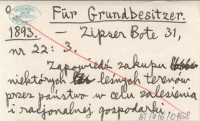 Für Grundbesitzer.
1893. — Zipser Bote 31,
nr 22: 3.
Zapowiedź zakupu
niektórych lesnych terenów
przez państwo w celu zalesienia
i racjonalnej gospodarki